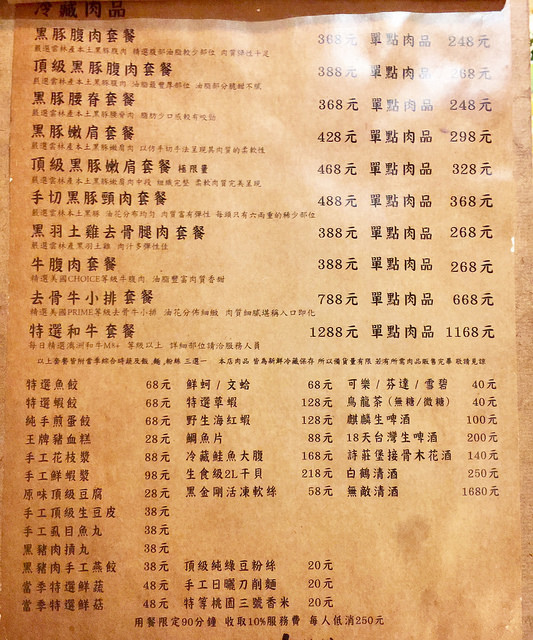 冷藏肉品
黑豚腹肉套餐 368元 單點肉品 248元
嚴選雲林產本土黑豚腹肉 精選腹部油脂較少部位 肉質彈性十足
頂級黑豚腹肉套餐 388元 單點肉品 268元
嚴選雲林產本土黑豚腹肉 油脂最豐厚部位 油脂部分脆甜不膩
黑豚腰脊套餐 368元 單點肉品 248元
嚴選雲林產本土黑豚腰脊肉 脂肪少口感較有咬勁
黑豚嫩肩套餐 428元 單點肉品 298元
嚴選雲林產本土黑豚嫩肩肉 以仿手切手法呈現其肉質的柔軟性
頂級黑豚嫩肩套餐 極限量 468元 單點肉品 328元
嚴選雲林產本土黑豚嫩肩肉中段 組織完整 柔軟肉質完美呈現
手切黑豚頸肉套餐 488元 單點肉品 368元
嚴選雲林本土黑豚 油花分布均勻 肉質富有彈性 每頭只有六兩重的稀少部位
黑羽土雞去骨腿肉套餐 388元 單點肉品 268元
嚴選雲林產黑羽土雞 肉汁多彈性佳
牛腹肉套餐 388元 單點肉品 268元
精選美國CHOICE等級牛腹肉 油脂豐富肉質香甜
去骨牛小排套餐 788元 單點肉品 668元
精選美國PRIME等級去骨牛小排 油花分佈細緻 肉質細膩堪稱入口即化
特選和牛套餐 1288元 單點肉品 1168元
每日精選澳洲和牛M8+ 等級以上 詳細部位請洽服務人員
以上套餐皆附當季綜合時蔬及飯,麵,粉絲 三選一 本店肉品 皆為新鮮冷藏保存 所以備貨量有限 若有所需肉品販售完畢 敬請見諒
特選魚餃 68元 鮮蚵 / 文蛤 68元 可樂 / 芬達 / 雪碧 40元
特選蝦餃 68元 特選草蝦 128元 烏龍茶 (無糖/微糖) 40元
純手煎蛋餃 68元 野生海紅蝦 128元 麒麟生啤酒 100元
王牌豬血糕 28元 鯛魚片 88元 18天台灣生啤酒 200元
手工花枝漿 88元 冷藏鮭魚大腹 168元 詩莊堡接骨木花酒 140元
手工鮮蝦漿 98元 生食級2L干貝 218元 白鶴清酒 250元
原味頂級豆腐 28元 黑金剛活凍軟絲 58元 無敵清酒 1680元
手工頂級生豆皮 38元
手工虱目魚丸 38元
黑豬肉摃丸 38元
黑豬肉手工燕餃 38元 頂級純綠豆粉絲 20元
當季特選鮮蔬 48元 手工日曬刀削麵 20元
當季特選鮮菇 48元 特等桃園三號香米 20元
用餐限定90分鐘 收取10%服務費 每人低消250元